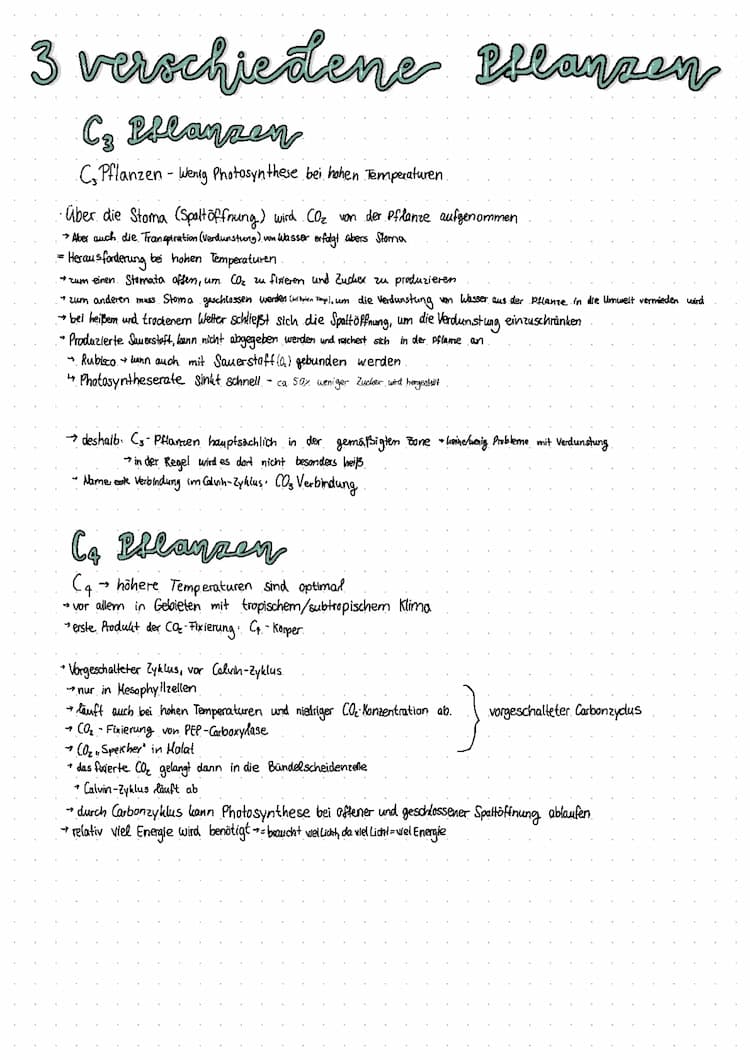 3 verschiedene Pflanzen
C₃ Pflanzen
C₃ Pflanzen - wenig Photosynthese bei hohen Temperaturen
· Über die Stoma (Spaltöffnung) wird CO₂ von der Pflanze aufgenommen
→ Aber auch die Transpiration (Verdunstung) von Wasser erfolgt übers Stoma
= Herausforderung bei hohen Temperaturen
→ zum einen Stomata offen, um CO₂ zu fixieren und Zucker zu produzieren
→ zum anderen muss Stoma geschlossen werden, um die Verdunstung von Wasser aus der Pflanze in die Umwelt vermieden wird
→ bei heißem und trockenem Wetter schließt sich die Spaltöffnung, um die Verdunstung einzuschränken
→ Produzierte Sauerstoff, kann nicht abgegeben werden und reichert sich in der Pflanze an
→ Rubisco → kann auch mit Sauerstoff (O₂) gebunden werden
↳ Photosyntheserate sinkt schnell - ca 50% weniger Zucker wird hergestellt
→ deshalb: C₃ - Pflanzen hauptsächlich in der gemäßigten Zone → keine/wenig Probleme mit Verdunstung
→ in der Regel wird es dort nicht besonders heiß
→ Name: erste Verbindung im Calvin-Zyklus: CO₃ Verbindung
C₄ Pflanzen
C₄ → höhere Temperaturen sind optimal
→ vor allem in Gebieten mit tropischem/subtropischem Klima
→ erste Produkt der CO₂-Fixierung: C₄-Körper
→ Vorgeschalteter Zyklus, vor Calvin-Zyklus
→ nur in Mesophyllzellen
→ läuft auch bei hohen Temperaturen und niedriger CO₂-Konzentration ab.
vorgeschalteter Carbonzyclus
→ CO₂ - Fixierung von PEP-Carboxylase
→ CO₂ „Speicher" in Malat
→ das fixierte CO₂ gelangt dann in die Bündelscheidenzelle
→ Calvin-Zyklus läuft ab
→ durch Carbonzyklus kann Photosynthese bei offener und geschlossener Spaltöffnung ablaufen
→ relativ viel Energie wird benötigt → = braucht viel Licht, da viel Licht = viel Energie